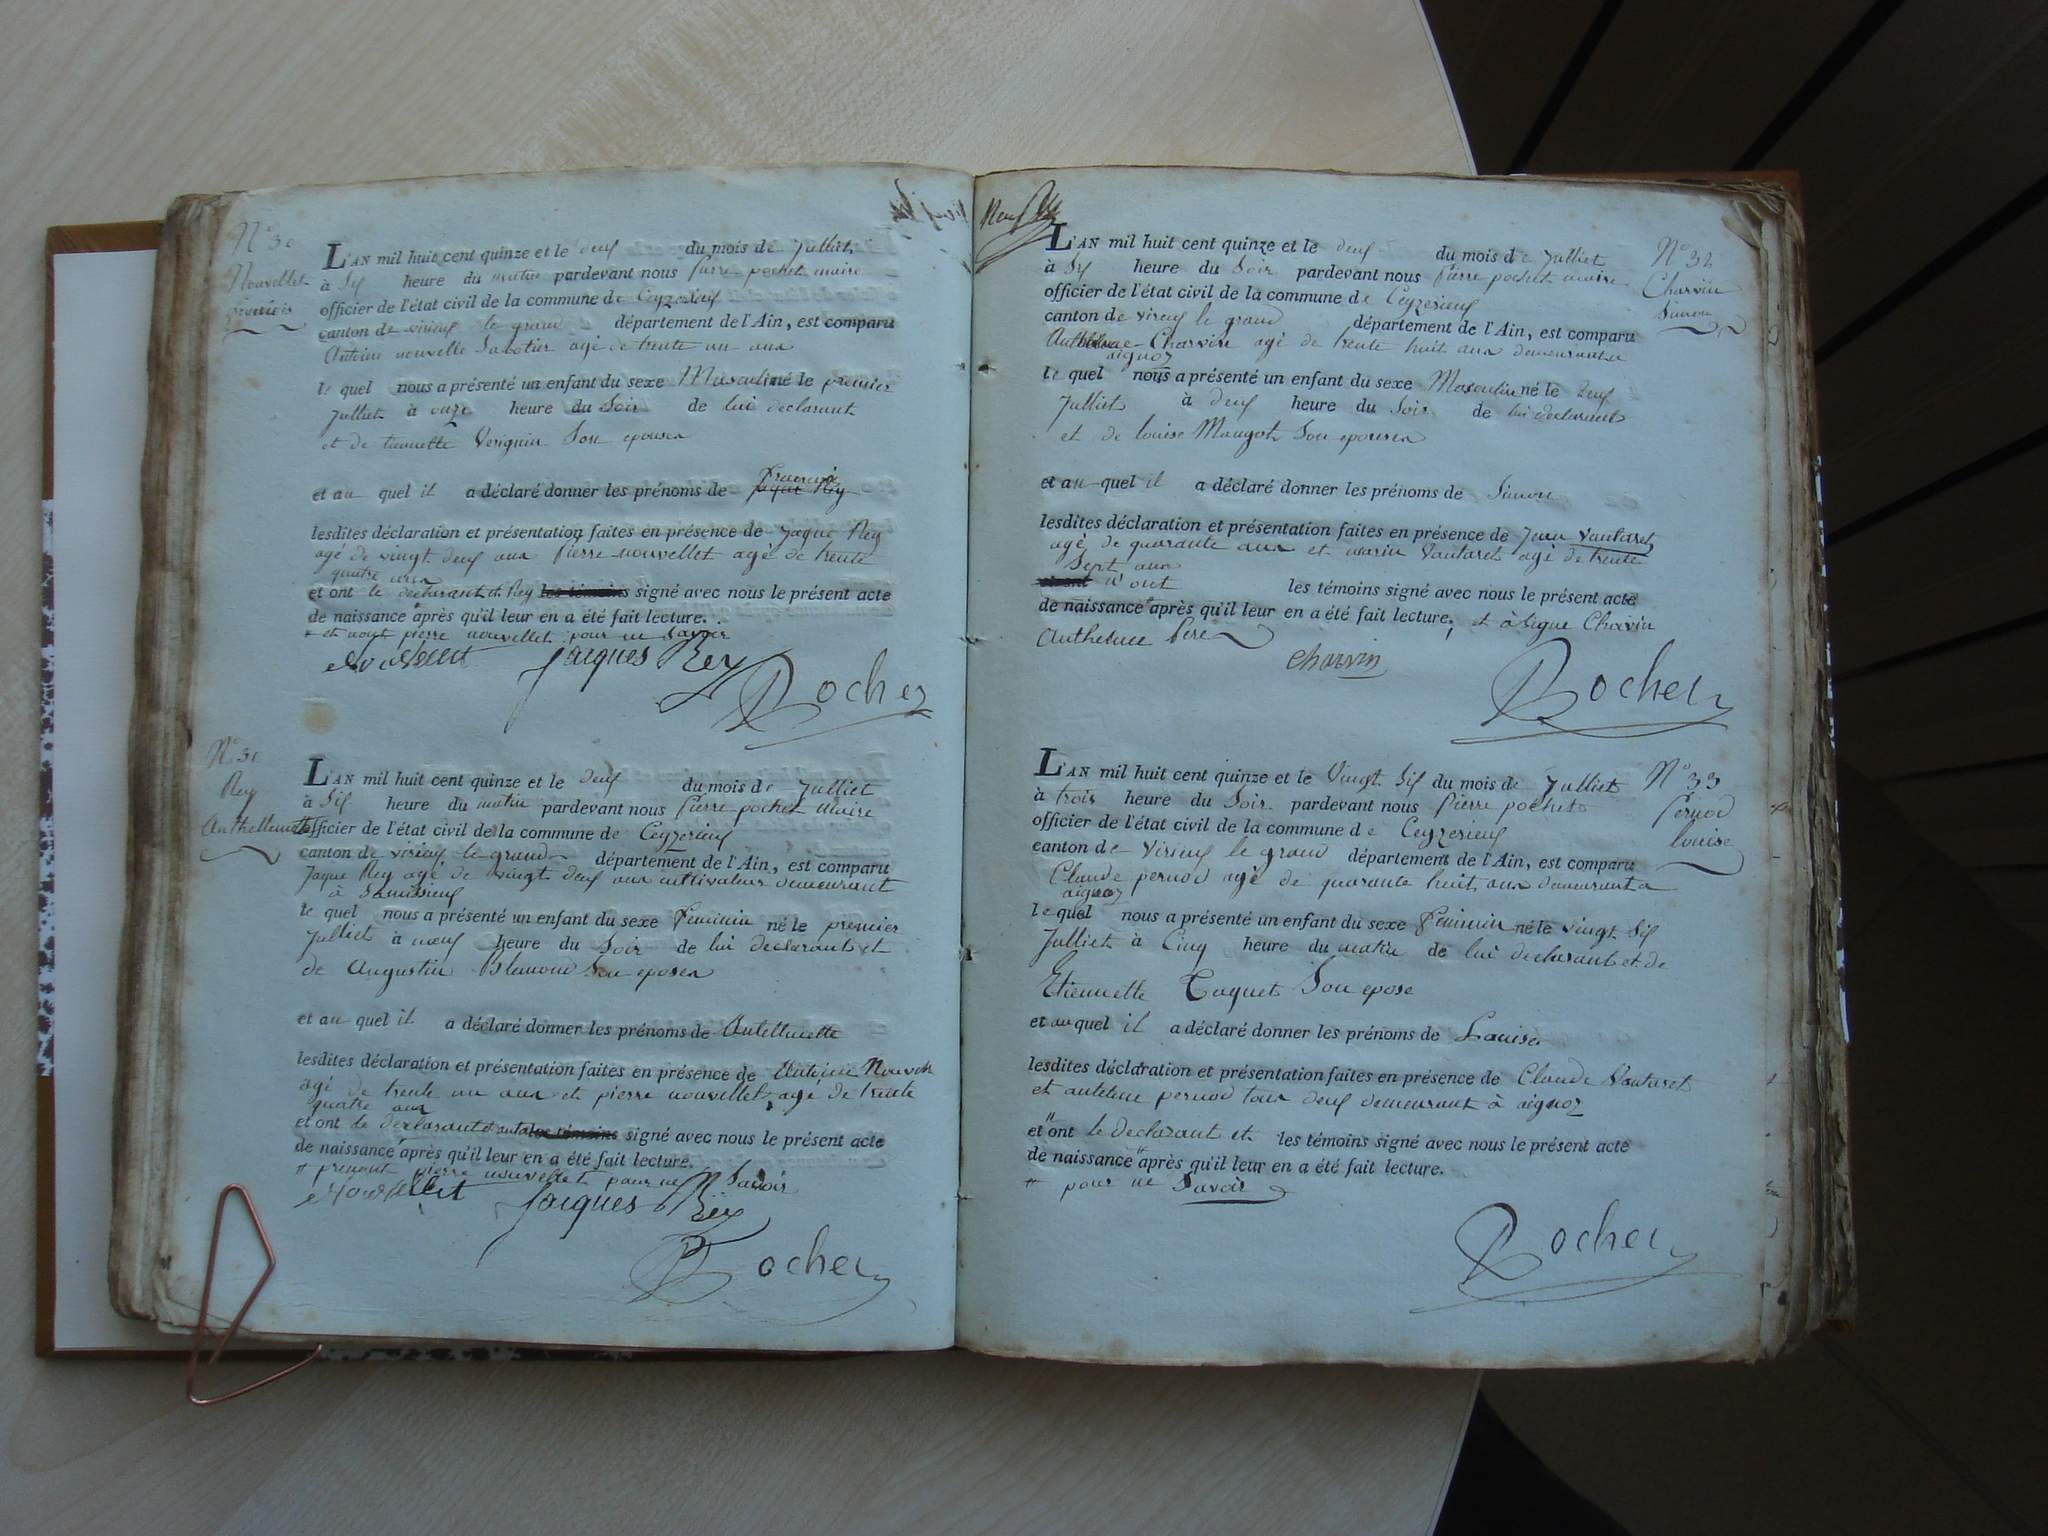 N° 30
Nouvellet
françois
L'AN mil huit cent quinze et le deux du mois de Julliet
à Six heure du matin pardevant nous pierre pochet maire
officier de l'état civil de la commune de Ceyzerieux
canton de virieux le grand département de l'Ain, est comparu
Antoine nouvelle Sabotier agé de trente un ans
le quel nous a présenté un enfant du sexe Masculin né le premier
Julliet à onze heure du Soir de lui declarant
et de Son epouse
et au quel il a déclaré donner les prénoms de françois
lesdites déclaration et présentation faites en présence de Jaque Rey
agé de vingt deux ans pierre nouvellet agé de trente
quatre ans
et ont le declarant et Rey les témoins signé avec nous le présent acte
de naissance après qu'il leur en a été fait lecture.
et nont pierre nouvellet pour ne Savoir
Nouvellet Jacques Rey
Pochet
N° 31
Rey
Anthellmette
L'AN mil huit cent quinze et le deux du mois de Julliet
à Six heure du matin pardevant nous pierre pochet maire
officier de l'état civil de la commune de Ceyzerieux
canton de virieux le grand département de l'Ain, est comparu
Jaque Rey agé de vingt deux ans cultivateur demeurant
à
le quel nous a présenté un enfant du sexe feminin né le premier
Julliet à neuf heure du Soir de lui declarant et
de Augustin Son epose
et au quel il a déclaré donner les prénoms de Antelmette
lesdites déclaration et présentation faites en présence de Antoine
agé de trente un ans et pierre nouvellet agé de trente
quatre ans
et ont le declarant et les témoins signé avec nous le présent acte
de naissance après qu'il leur en a été fait lecture.
pierre nouvellet pour ne Savoir
Nouvellet Jacques Rey
Pochet
L'AN mil huit cent quinze et le deux du mois de Julliet
à Six heure du Soir pardevant nous pierre pochet maire
officier de l'état civil de la commune de Ceyzerieux
canton de virieux le grand département de l'Ain, est comparu
Charvin agé de trente huit ans demeurant a
aignoz
le quel nous a présenté un enfant du sexe Masculin né le deux
Julliet à deux heure du Soir de lui declarant
et de louise Mangot Son epouse
et au quel il a déclaré donner les prénoms de Simon
lesdites déclaration et présentation faites en présence de Jean Vautaret
agé de quarante ans et marin Vautaret agé de trente
Sept ans
n'ont les témoins signé avec nous le présent acte
de naissance après qu'il leur en a été fait lecture, et à Signe Charvin
Anthelme Pere
Charvin
Pochet
N° 32
Charvin
Simon
L'AN mil huit cent quinze et le Vingt Six du mois de Julliet
à trois heure du Soir pardevant nous pierre pochet
officier de l'état civil de la commune de Ceyzerieux
canton de Virieux le grand département de l'Ain, est comparu
Claude pernod agé de quarante huit ans demeurant a
aignoz
le quel nous a présenté un enfant du sexe feminin né le vingt Six
Julliet à Cinq heure du matin de lui declarant et de
Etiennette Taquet Son epose
et au quel il a déclaré donner les prénoms de Louise
lesdites déclaration et présentation faites en présence de Claude Vautaret
et antelme pernod tous deux demeurant à aignoz
et "ont le declarant et les témoins signé avec nous le présent acte
de naissance après qu'il leur en a été fait lecture.
pour ne Savoir
Pochet
N° 33
Pernod
louise